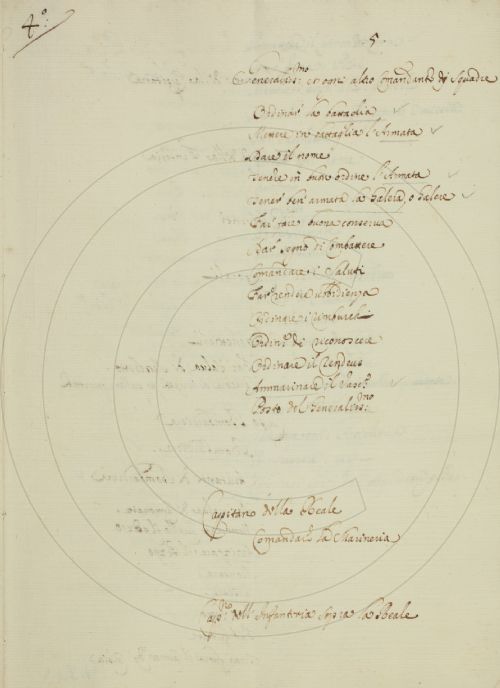 4.º:
5.
Generaliss:mo et ogni altro Comandante di Squadre
Ordinar la battaglia
Mettere in battaglia l'Armata
Dare il nome
Tenere in buon ordine l'Armata
Tener ben armata la Galera, o Galere
Far fare buona conserva
Dar segno di Combattere
Comandare i Saluti
Far rendere ubbidienza
Ordinare i
Ordinº di riconoscere
Ordinare il Rendeus
Ammarinare il
Posto del Generaliss:mo
Capitano della Reale
Comandar la Marineria
Capno: dell'Infanteria sopra la Reale